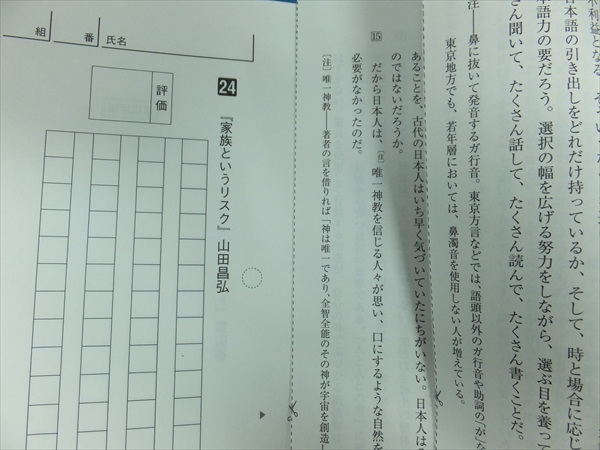 不利益となる。
本語の引き出しをどれだけ持っているか、そして、時と場合に応じ
本語力の要だろう。選択の幅を広げる努力をしながら、選ぶ目を養って
さん聞いて、たくさん話して、たくさん読んで、たくさん書くことだ。
注――鼻に抜いて発音するガ行音。東京方言などでは、語頭以外のガ行音や助詞の「が」な
東京地方でも、若年層においては、鼻濁音を使用しない人が増えている。
あることを、古代の日本人はいち早く気づいていたにちがいない。日本人は
のではないだろうか。
15
だから日本人は、[注]唯一神教を信じる人々が思い、口にするような自然を
必要がなかったのだ。
[注]唯一神教――著者の言を借りれば「神は唯一であり、全智全能のその神が宇宙を創造し
24
『家族というリスク』山田昌弘
評価
組
番
氏名